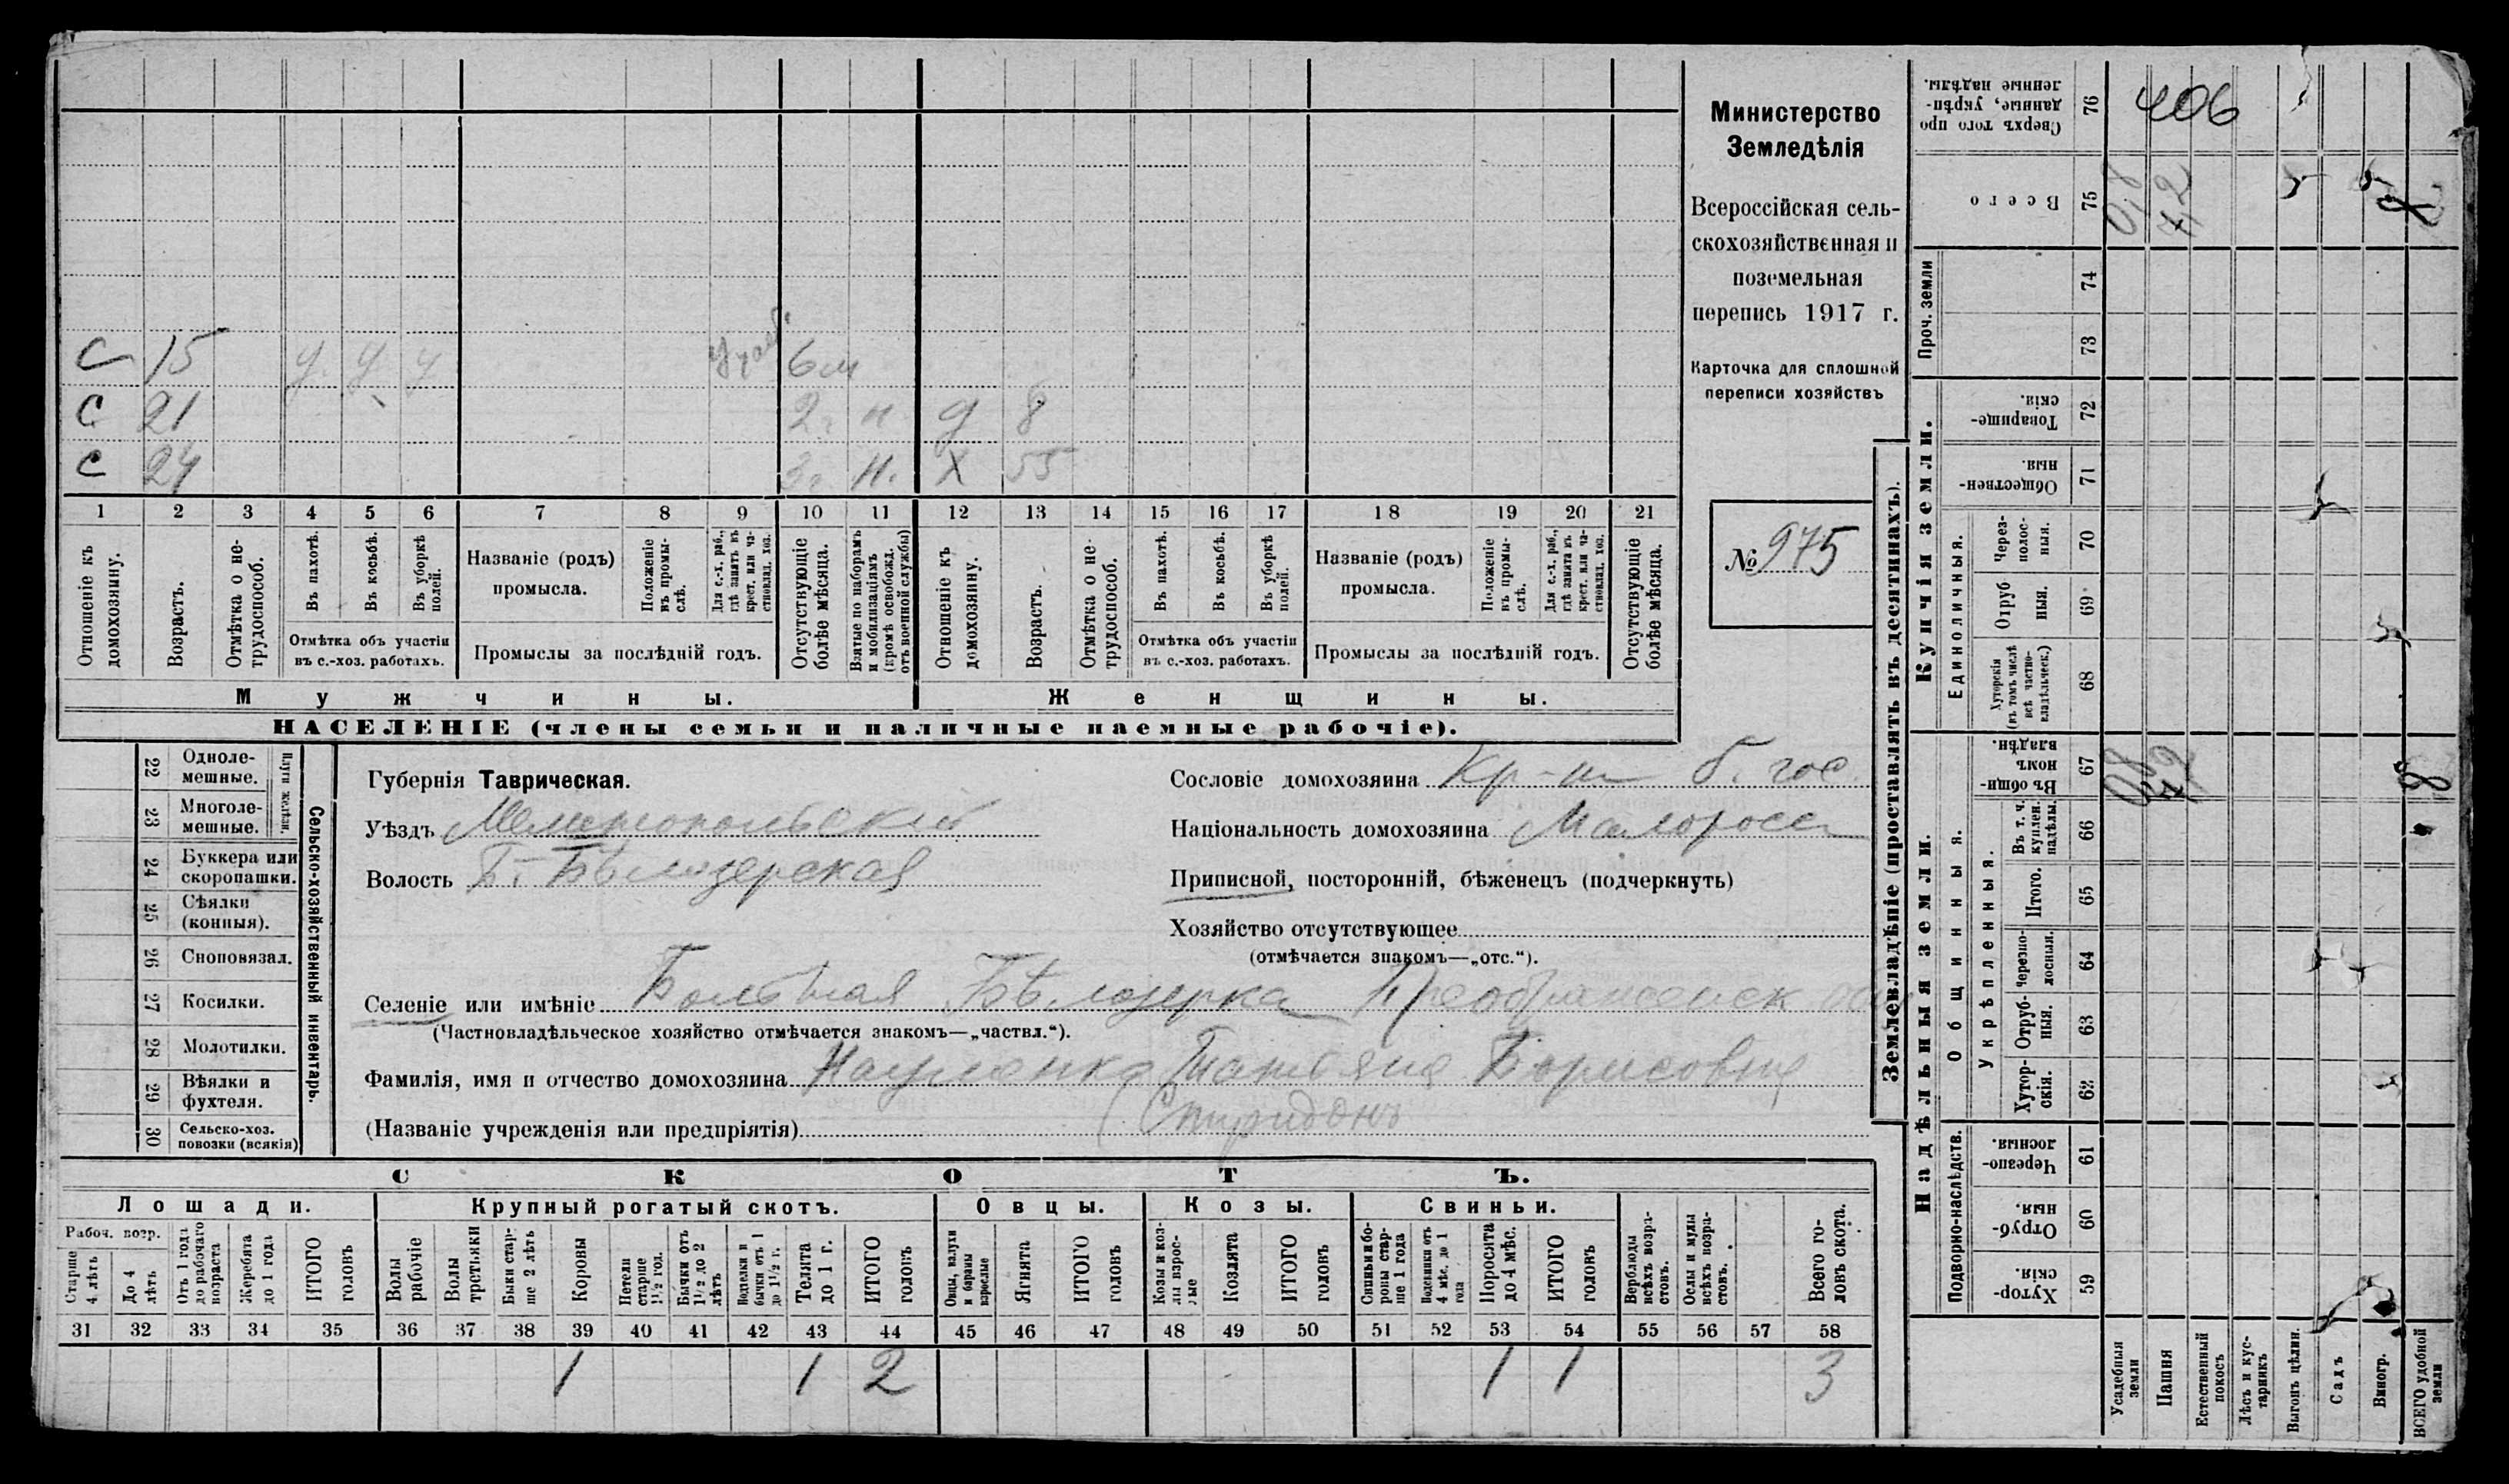 С 15 у у у 6 м
С 21 2 г. н д 8
С 24 3 г. н. Х 55
1 2 3 4 5 6 7 8 9 10 11 12 13 14 15 16 17 18 19 20 21
Отношеніе къ домохозяину.
Возрастъ.
Отмѣтка о не-трудоспособ.
Въ пахотѣ.
Въ косьбѣ.
Въ уборкѣ полей.
Отмѣтка объ участіи
въ с.-хоз. работахъ.
Названіе (родъ)
промысла.
Положеніе въ промы-слѣ.
Для с.-х. раб., гдѣ занятъ въ крест. или ча-стновлад. хоз.
Промыслы за послѣдній годъ.
Отсутствующіе болѣе мѣсяца.
Взятые по наборамъ и мобилизаціямъ (кромѣ освобожд. отъ военной службы)
Отношеніе къ домохозяину.
Возрастъ.
Отмѣтка о не-трудоспособ.
Въ пахотѣ.
Въ косьбѣ.
Въ уборкѣ полей.
Отмѣтка объ участіи
въ с.-хоз. работахъ.
Названіе (родъ)
промысла.
Положеніе въ промы-слѣ.
Для с.-х. раб., гдѣ занята въ крест. или ча-стновлад. хоз.
Промыслы за послѣдній годъ.
Отсутствующіе болѣе мѣсяца.
Мужчины. Женщины.
НАСЕЛЕНІЕ (члены семьи и наличные наемные рабочіе).
Министерство
Земледѣлія
Всероссійская сель-
скохозяйственная и
поземельная
перепись 1917 г.
Карточка для сплошной
переписи хозяйствъ
№ 975
22 Одноле-мешные.
23 Многоле-мешные.
Плуги желѣзн.
24 Буккера или скоропашки.
25 Сѣялки (конныя).
26 Сноповязал.
27 Косилки.
28 Молотилки.
29 Вѣялки и фухтеля.
30 Сельско-хоз. повозки (всякія)
Сельско-хозяйственный инвентарь.
Губернія Таврическая.
Уѣздъ Мелитопольскій
Волость Б.-Бѣлозерская
Сословіе домохозяина Кр-н б. гос.
Національность домохозяина Малоросс
Приписной, посторонній, бѣженецъ (подчеркнуть)
Хозяйство отсутствующее
(отмѣчается знакомъ—„отс.“).
Селеніе или имѣніе Большая Бѣлозерка
(Частновладѣльческое хозяйство отмѣчается знакомъ—„частвл.“).
Фамилія, имя и отчество домохозяина Науменко Татьяна Борисовна
(Спиридонъ
(Названіе учрежденія или предпріятія)
СКОТЪ.
Лошади. Крупный рогатый скотъ. Овцы. Козы. Свиньи.
Рабоч. возр.
Старше 4 лѣтъ
До 4 лѣтъ
Отъ 1 года до рабочаго возраста
Жеребята до 1 года
ИТОГО головъ
Волы рабочіе
Волы третьяки
Быки стар-ше 2 лѣтъ
Коровы
Нетели старше 1½ год.
Бычки отъ 1½ до 2 лѣтъ
Подтелки и бычки отъ 1 до 1½ г.
Телята до 1 г.
ИТОГО головъ
Овцы, валухи и бараны взрослые
Ягнята
ИТОГО головъ
Козы и коз-лы взрос-лые
Козлята
ИТОГО головъ
Свиньи и бо-ровы стар-ше 1 года
Подсвинки отъ 4 мѣс. до 1 года
Поросята до 4 мѣс.
ИТОГО головъ
Верблюды всѣхъ возра-стовъ.
Ослы и мулы всѣхъ возра-стовъ.
Всего го-ловъ скота.
31 32 33 34 35 36 37 38 39 40 41 42 43 44 45 46 47 48 49 50 51 52 53 54 55 56 57 58
1 1 2 1 1 3
Землевладѣніе (проставлять въ десятинахъ).
Купчія земли.
Надѣльныя земли.
Сверхъ того про данные, укрѣп-ленные надѣлы. 76 406
Всего 75
Проч. земли 74 73
Товарище-скія. 72
Обществен-ныя. 71
Единоличныя.
Через-полос-ныя. 70
Отруб-ныя. 69
Хуторскія (въ томъ числѣ всѣ частно-владѣльческ.) 68
Общинныя.
Въ общи-нномъ владѣн. 67
Укрѣпленныя.
Въ т. ч. куплен. надѣлы. 66
Итого. 65
Черезпо-лосныя. 64
Отруб-ныя. 63
Хутор-скія. 62
Подворно-наслѣдств.
Черезпо-лосныя. 61
Отруб-ныя. 60
Хутор-скія. 59
Усадебныя земли
Пашня
Естественный покосъ
Лѣсъ и кус-тарникъ
Выгонъ цѣлин.
Садъ
Виногр.
ВСЕГО удобной земли